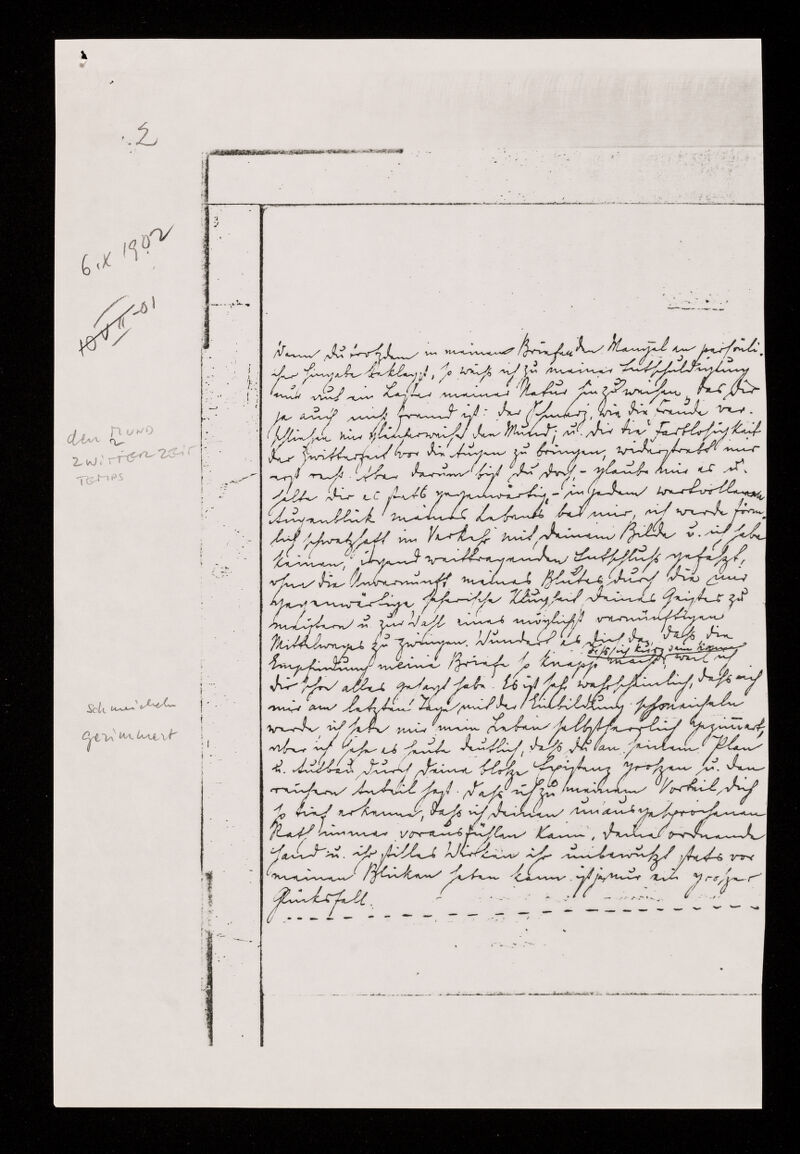 2
6.X 1902
10 VII -01
3
den MUND
2
ZWITTERZEIT
TEMPS
schmeicheln
gezimmert
Wenn du trotzdem in meinen Briefen den Mangel an persönli-
cher Hingabe beklagst, so weiß ich zu meiner Entschuldigung
nur auf ein Laster meiner Natur hinzuweisen, das Dir
ja auch nicht fremd ist: der Schmerz wie die Freude ver-
schließen mir den Mund, u. Dir die Farblosigkeit
der Zwitterzeit vor die Augen zu bringen, widerstrebt mir
erst recht. Aber darum bist du doch - glaube mir es u.
halte Dir es stets gegenwärtig - in jedem wertvolleren
Augenblick meines Lebens bei mir, ich werde förm-
lich schwatzhaft im Verkehr mit deinem Bilde u. ich habe
keinen, irgend weittragenden Entschluß gefaßt,
ohne die Unvernunft meines Blutes durch die mir
gegenwärtige Klugheit deines Geistes zu
meistern u zur Wahl eines möglichst vernünftigen
Mittelweges zu zwingen. Wundert es dich da, daß die
Empfindung meine Briefe so knapp macht, weil ich
daß ich kurz sein kann
dir schon alles gesagt habe. Es ist sehr wahrscheinlich, daß ich
mir am letzten Tage mit der Einbildung schmeicheln
werde, ich habe mir mein Leben selbstherrlich gezimmert,
aber ich sehe es heute deutlich, daß du an seinem Plan
u. Aufbau durch deine bloße Existenz großen u. den
reichern Anteil hast. Daß ich zu meinem Vorteil dich
so tief erkenne, daß ich deinen unausgesprochenen
Rath immer vorausfühlen kann, deine ordnende
Hand u. ihr stilles Wirken ihr unbewußt stets vor
meinen Blicken haben kann ist ja nur ein großer
Glücksfall.